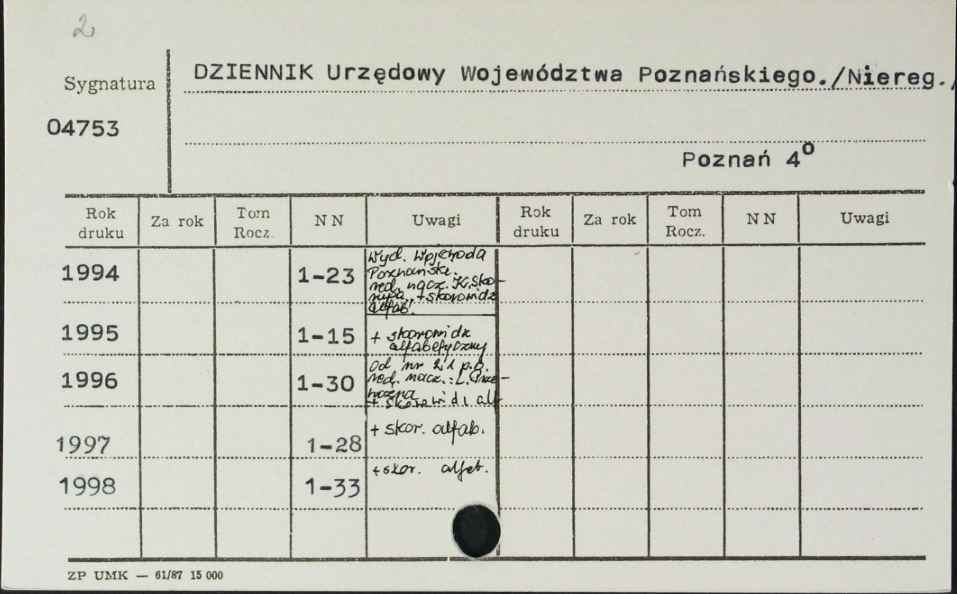 2
Sygnatura
DZIENNIK Urzędowy Województwa Poznańskiego./Niereg./
04753
Poznań 4⁰
Rok druku Za rok Tom Rocz. N N Uwagi Rok druku Za rok Tom Rocz. N N Uwagi
1994 1-23 Wyd. Wojewoda
Poznański.
red. nacz. K. Sko-
rupa. + skorowidz
alfab.
1995 1-15 + skorowidz
alfabetyczny
1996 1-30 od nr 21 p.o.
red. nacz.: L.
+ skorowidz alf.
1997 1-28 + skor. alfab.
1998 1-33 + skor. alfab.
ZP UMK — 61/87 15 000